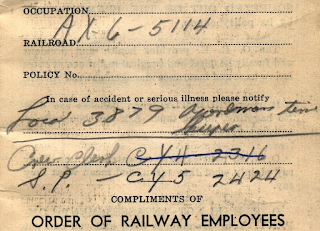 OCCUPATION
AX-6-5114
RAILROAD
POLICY No.
In case of accident or serious illness please notify
Local 3879
CY11 2316
S.P. - CY5 2424
COMPLIMENTS OF
ORDER OF RAILWAY EMPLOYEES